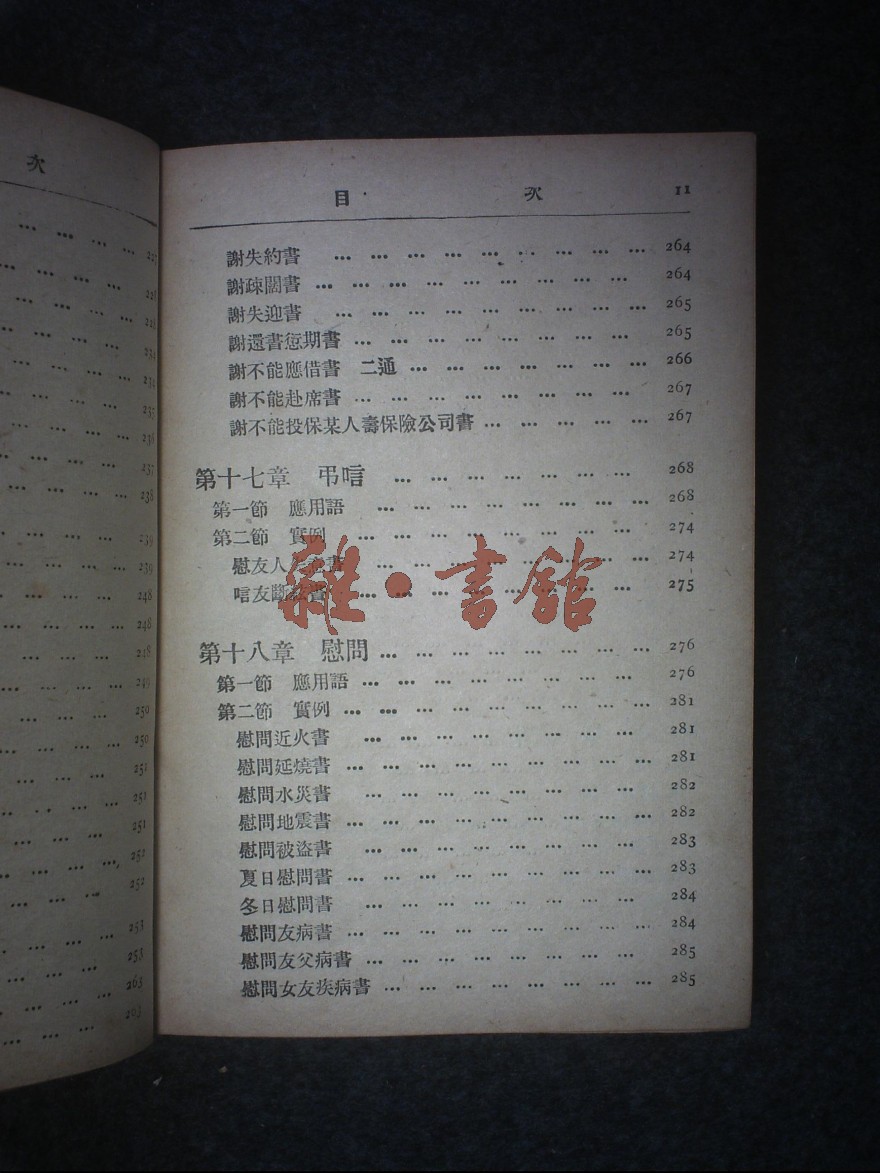 次
227
228
228
234
234
235
236
237
238
239
239
248
248
248
249
250
250
251
251
251
252
252
253
253
263
263
目 次 11
謝失約書 … … … … … … … … … 264
謝疎闊書 … … … … … … … … … 264
謝失迎書 … … … … … … … … 265
謝還書愆期書 … … … … … … … … 265
謝不能應借書 二通 … … … … … … … 266
謝不能赴席書 … … … … … … … … 267
謝不能投保某人壽保險公司書 … … … … … 267
第十七章 弔唁 … … … … … … … 268
第一節 應用語 … … … … … … … 268
第二節 實例 … … … … … … … … 274
慰友人 書 … … … … … … … 274
唁友斷絃書 … … … … … … … 275
雜·書館
第十八章 慰問 … … … … … … … … 276
第一節 應用語 … … … … … … … … 276
第二節 實例 … … … … … … … … … 281
慰問近火書 … … … … … … … 281
慰問延燒書 … … … … … … … … … 281
慰問水災書 … … … … … … … … 282
慰問地震書 … … … … … … … … … 282
慰問被盜書 … … … … … … … … 283
夏日慰問書 … … … … … … … … … 283
冬日慰問書 … … … … … … … … 284
慰問友病書 … … … … … … … … … 284
慰問友父病書 … … … … … … … … 285
慰問女友疾病書 … … … … … … … … 285